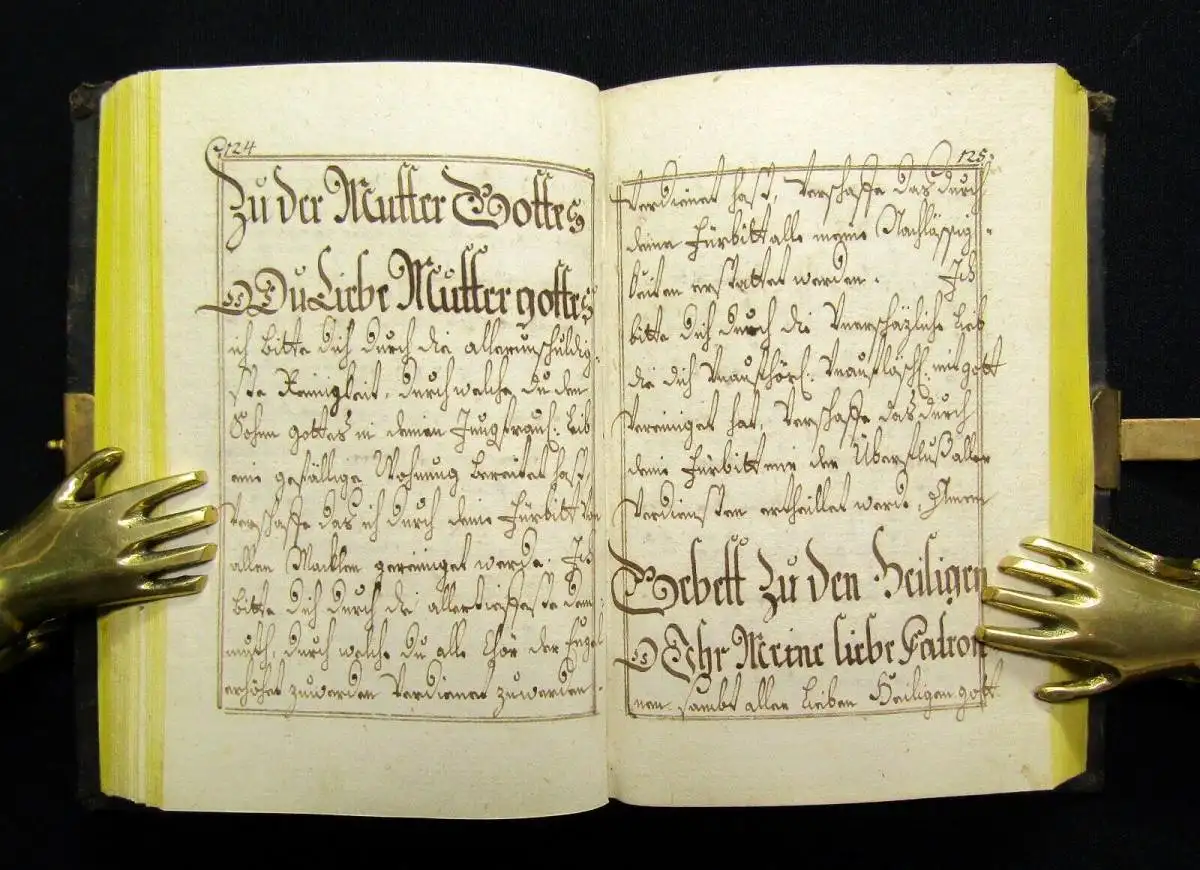 124
Zu der Mutter Gottes
O Du Liebe Mutter gottes
ich bitte dich durch die allerunschuldig-
ste Reinigkeit, durch welche du dem
Sohn gottes in deinen Jungfraul: leib
eine gefällige Wohnung bereitet hast,
verschaffe das ich durch deine fürbitt von
allen Macklen gereiniget werde. Ich
bitte dich durch die allertieffeste dem-
muth, durch welche du alle Chör der Engel
erhöhet zuwerden verdienet zuwerden
125
verdienet hast, verschaffe das durch
deine fürbitt alle meine Nachlässig-
keiten erstattet werden. Ich
bitte dich durch die Unerschäzliche lieb
die dich Unaufhörl: Unauflöschl: mit gott
Vereiniget hat, verschaffe das durch
deine fürbitt mir der Überfluß aller
Verdiensten ertheillet werd, Amen
Gebett zu den Heiligen
O Ihr Meine liebe Patron
nen sambt allen lieben Heiligen gott